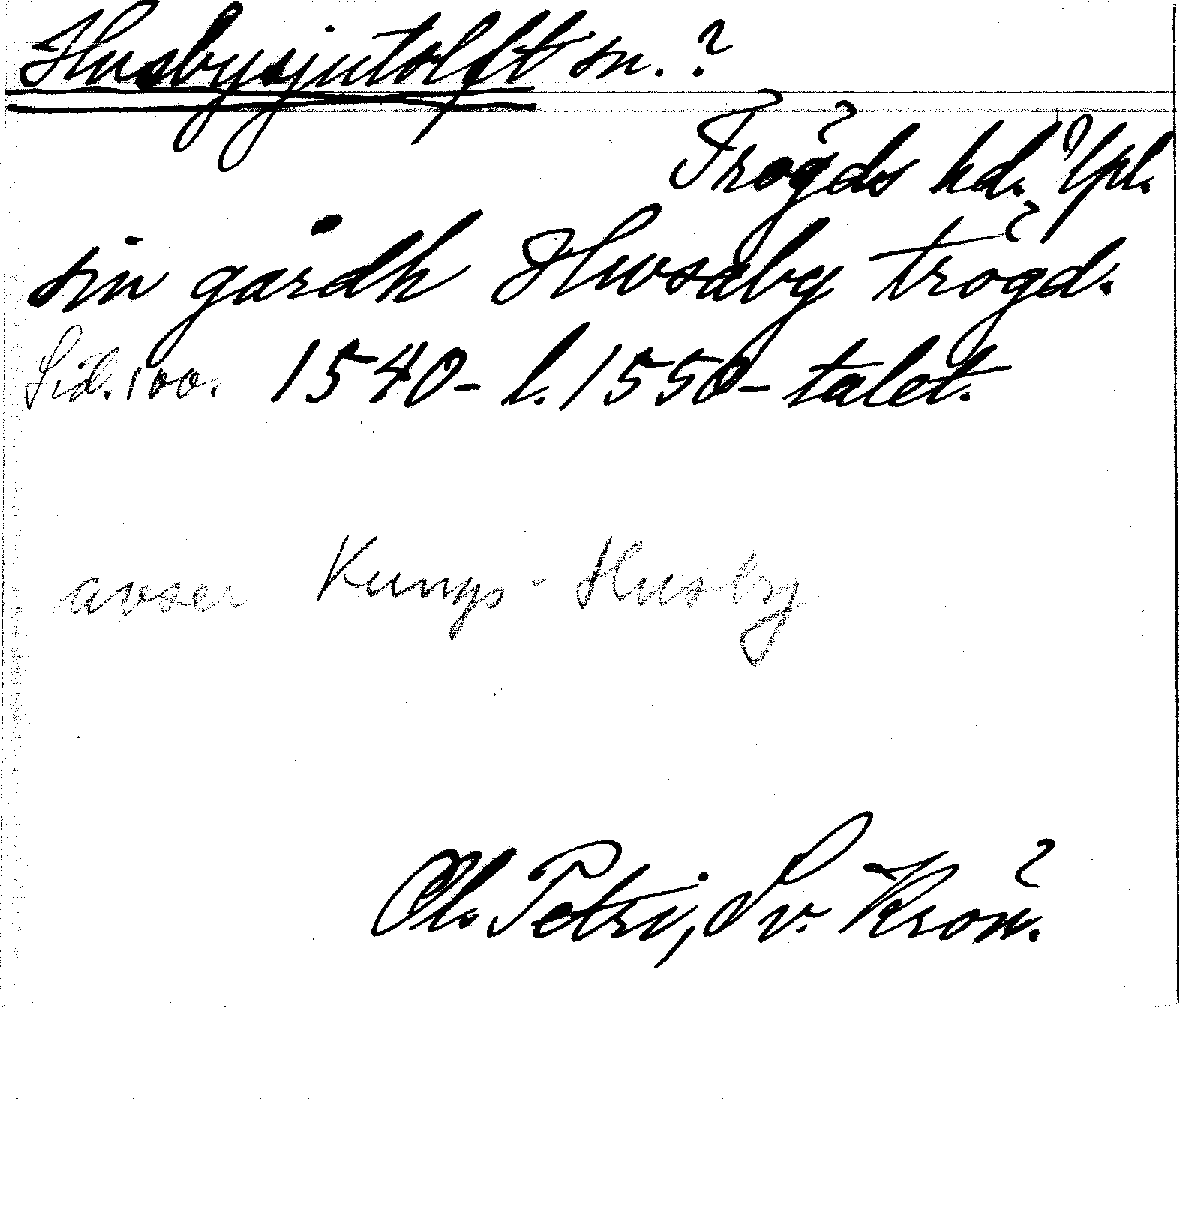 Husbysjutolft sn. ?
Trögds hd. Upl.
sin gårdh Hwsaby trögd.
Sid. 100. 1540- l. 1550-talet.
avser Kungs-Husby
Ol. Petri, Sv. Krön.